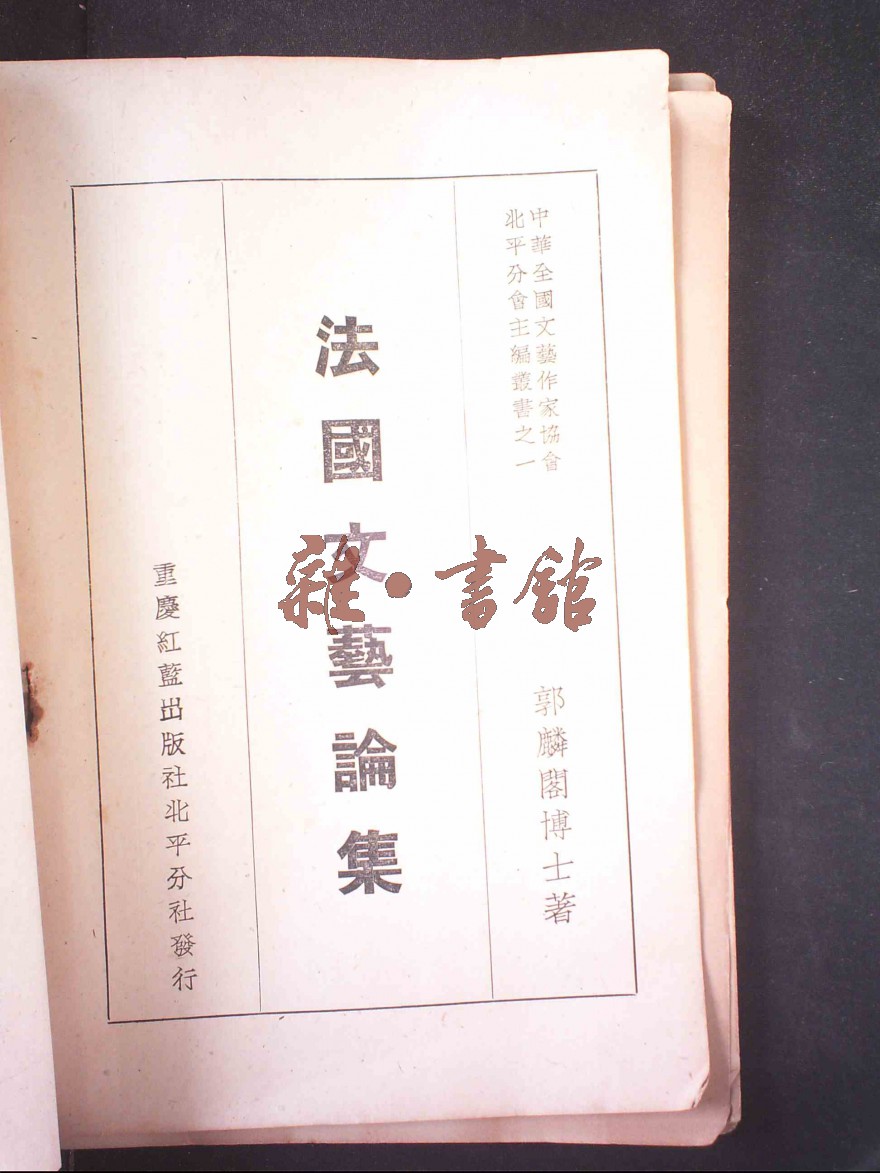 中華全國文藝作家協會
北平分會主編叢書之一
郭麟閣博士著
法國文藝論集
重慶紅藍出版社北平分社發行
雜·書館